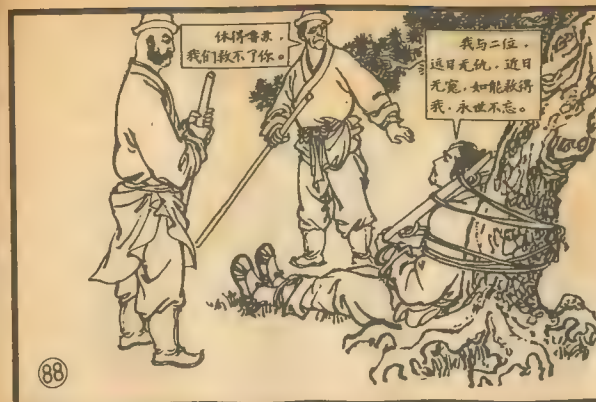 休得啰嗦，
我们救不了你。
我与二位，
远日无仇，近日
无冤，如能救得
我，永世不忘。
88